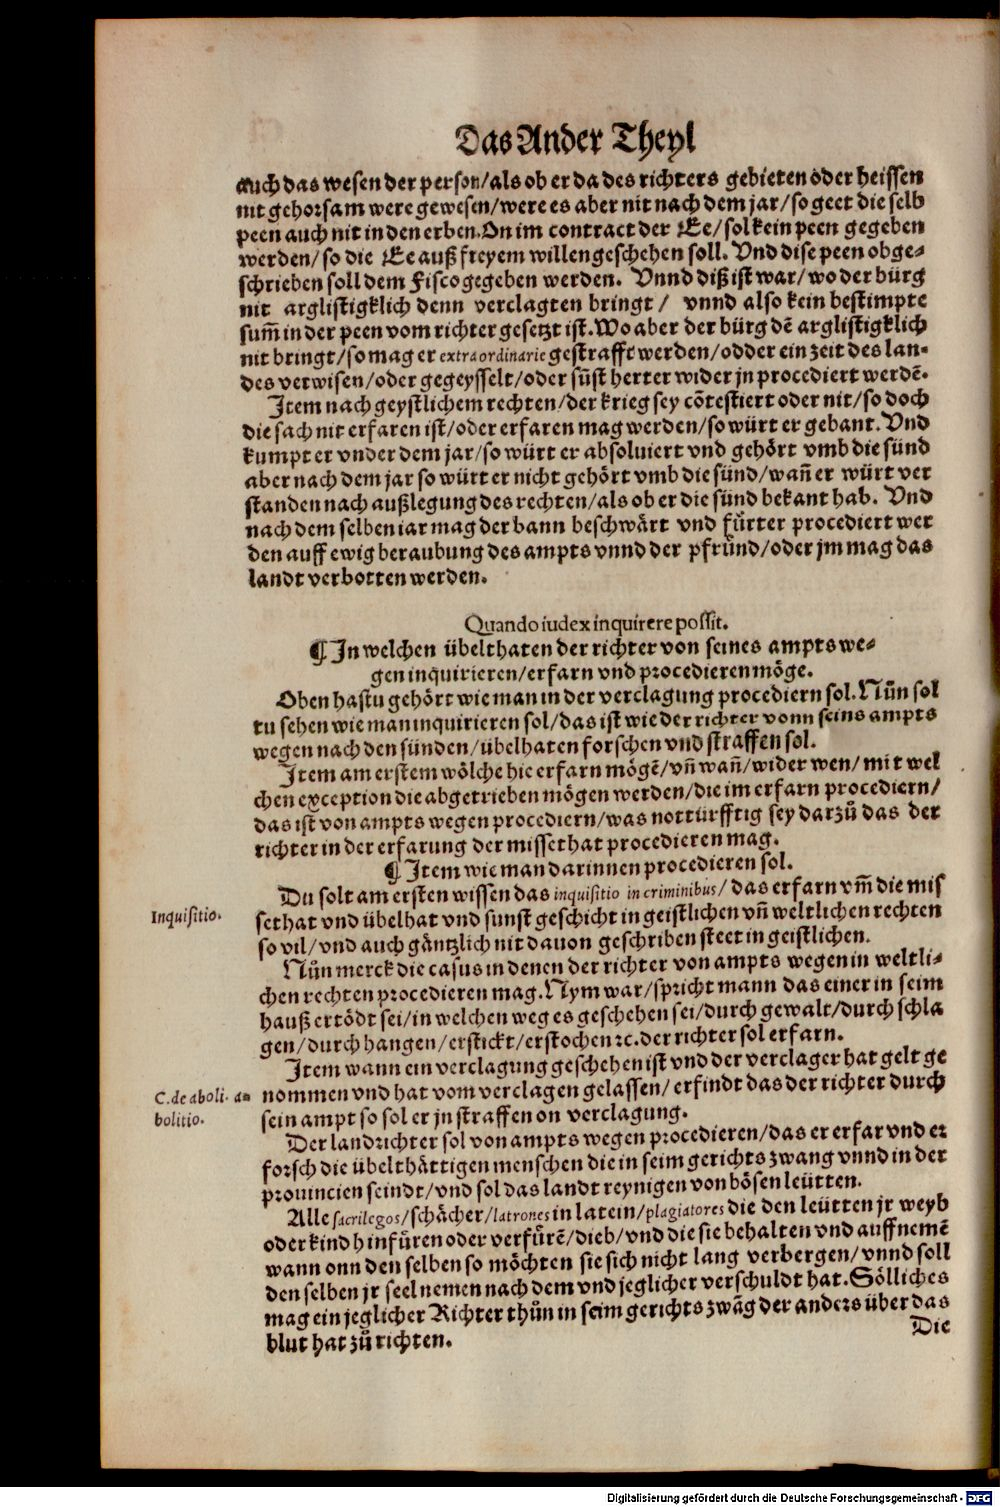 Das Ander Theyl
auch das wesen der person/als ob er da des richters gebieten oder heissen
nit gehorsam were gewesen/were es aber nit nach dem jar/so geet die selb
peen auch nit in den erben. On im contract der Ee/sol kein peen gegeben
werden/so die Ee auß freyem willen geschehen soll. Vnd dise peen obge-
schrieben soll dem Fisco gegeben werden. Vnnd diß ist war/wo der bürg
nit arglistigklich denn verclagten bringt/ vnnd also kein bestimpte
sum̃ in der peen vom richter gesetzt ist. Wo aber der bürg dẽ arglistigklich
nit bringt/so mag er extraordinarie gestrafft werden/odder ein zeit des lan-
des verwisen/oder gegeysselt/oder sũst herter wider jn procediert werdẽ.
Item nach geystlichem rechten/der krieg sey cõtestiert oder nit/so doch
die sach nit erfaren ist/oder erfaren mag werden/so würt er gebant. Vnd
kumpt er vnder dem jar/so würt er absoluiert vnd gehört vmb die sünd
aber nach dem jar so würt er nicht gehört vmb die sünd/wañ er würt ver
standen nach außlegung des rechten/als ob er die sünd bekant hab. Vnd
nach dem selben iar mag der bann beschwärt vnd fürter procediert wer
den auff ewig beraubung des ampts vnnd der pfründ/oder jm mag das
landt verbotten werden.
Quando iudex inquirere possit.
¶ In welchen übelthaten der richter von seines ampts we-
gen inquirieren/erfarn vnd procedieren möge.
Oben hastu gehört wie man in der verclagung procediern sol. Nůn sol
tu sehen wie man inquirieren sol/das ist wie der richter vonn seins ampts
wegen nach den sünden/übelhaten forschen vnd straffen sol.
Item am erstem wölche hie erfarn mögẽ/vñ wañ/wider wen/mit wel
chen exception die abgetrieben mögen werden/die im erfarn procediern/
das ist von ampts wegen procediern/was notturfftig sey darzů das der
richter in der erfarung der missethat procedieren mag.
¶ Item wie man darinnen procedieren sol.
Du solt am ersten wissen das inquisitio in criminibus/das erfarn vm̃ die mis
Inquisitio.
sethat vnd übelhat vnd sunst geschicht in geistlichen vñ weltlichen rechten
so vil/vnd auch gäntzlich nit dauon geschriben steet in geistlichen.
Nůn merck die casus in denen der richter von ampts wegen in weltli-
chen rechten procedieren mag. Nym war/spricht mann das einer in seim
hauß ertödt sei/in welchen weg es geschehen sei/durch gewalt/durch schla
gen/durch hangen/erstickt/erstochen ꝛc. der richter sol erfarn.
Item wann ein verclagung geschehen ist vnd der verclager hat gelt ge
C. de aboli. a-
bolitio.
nommen vnd hat vom verclagen gelassen/erfindt das der richter durch
sein ampt so sol er jn straffen on verclagung.
Der landrichter sol von ampts wegen procedieren/das er erfar vnd er
forsch die übelthättigen menschen die in seim gerichts zwang vnnd in der
prouincien seindt/vnd sol das landt reynigen von bösen leütten.
Alle sacrilegos/schächer/latrones in latein/plagiatores die den leütten jr weyb
oder kind hinfüren oder verfürẽ/dieb/vnd die sie behalten vnd auffnemẽ
wann onn den selben so möchten sie sich nicht lang verbergen/vnnd soll
den selben jr seel nemen nach dem vnd jeglicher verschuldt hat. Sölliches
mag ein jeglicher Richter thůn in seim gerichts zwãg der anders über das
blut hat zů richten.
Die
Digitalisierung gefördert durch die Deutsche Forschungsgemeinschaft - DFG